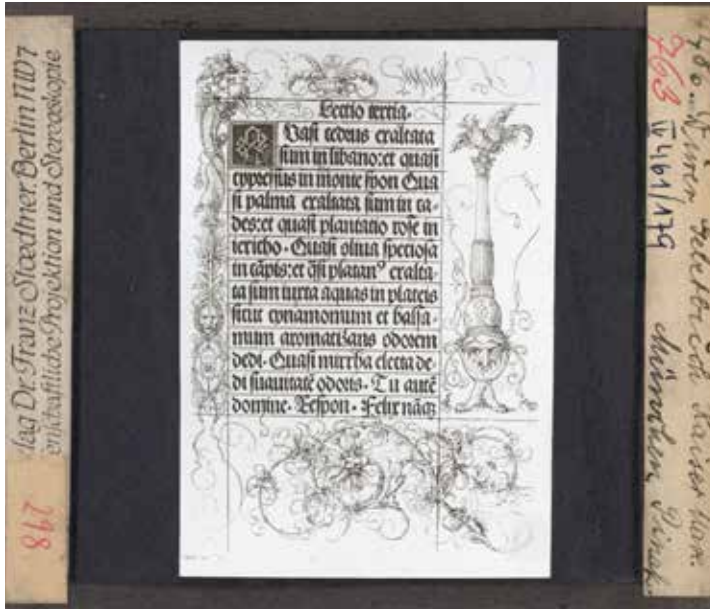 lag Dr. Franz Stoedtner. Berlin NW 7
enschaftliche Projektion und Stereoskopie
298
Lectio tertia.
QVasi cedrus exaltata
sum in libano: et quasi
cypressus in monte syon Qua
si palma exaltata sum in ca-
des: et quasi plantatio rose in
iericho. Quasi oliua speciosa
in cāpis: et q̄si platanꝰ exalta-
ta sum iuxta aquas in plateis
sicut cynamomum et balsa-
mum aromatizans odorem
dedi. Quasi mirrha electa de-
di suauitatē odoris. Tu autē
domine. Respon. Felix nāqꝫ
480. Dürer Gebetbuch Kaiser Max.
763
IV 461/179
München, Pinak.